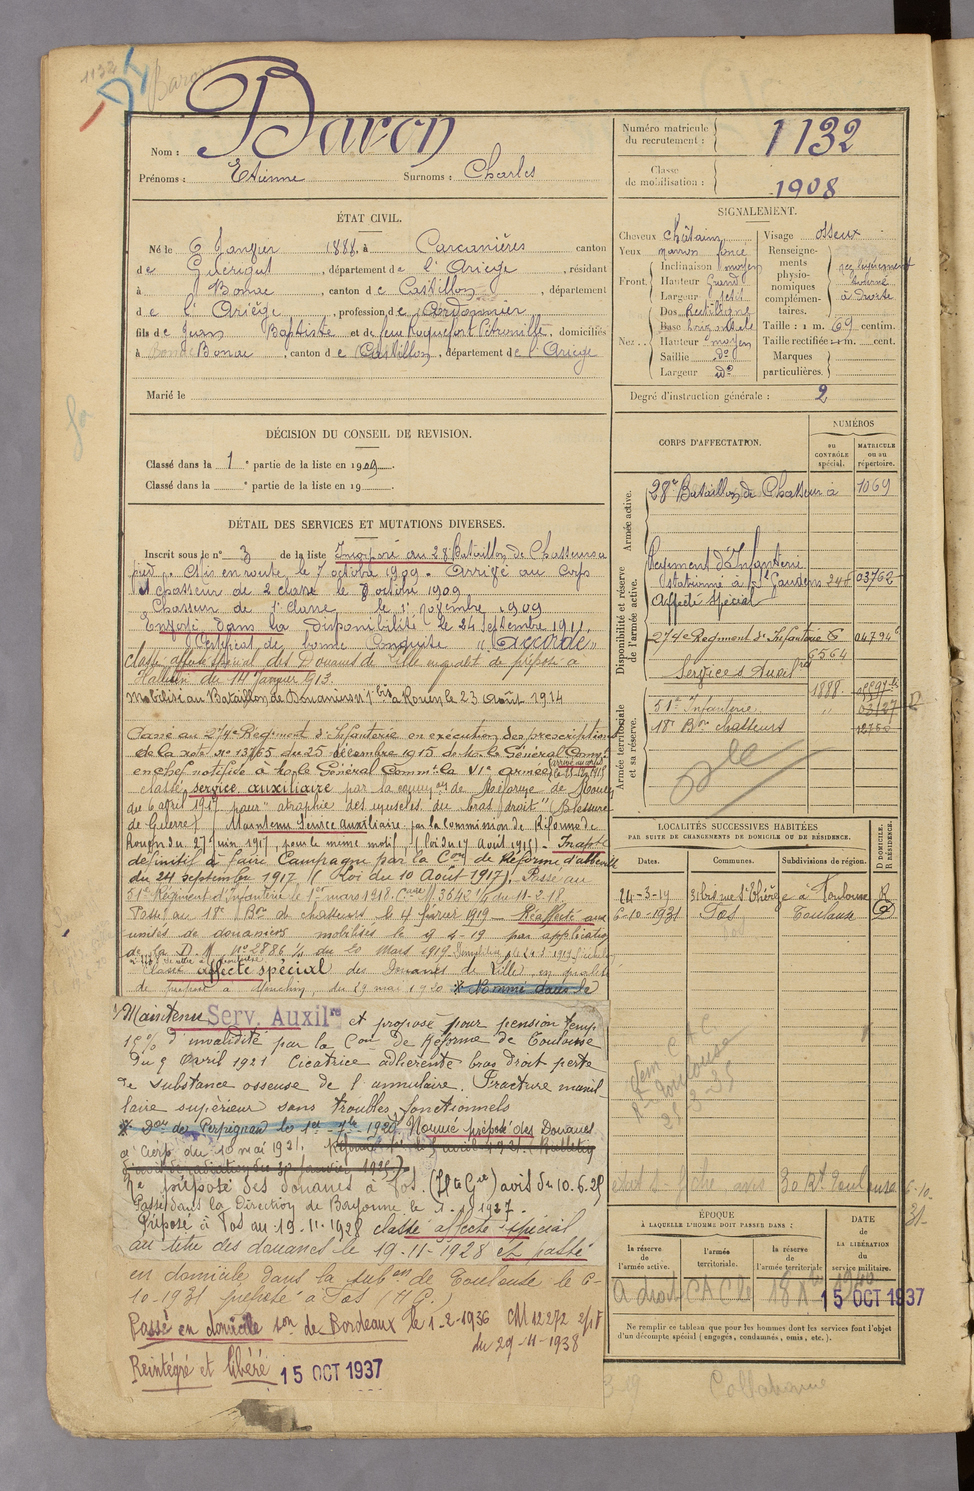 1132
Baron
Nom : Baron
Prénoms : Etienne Surnoms : Charles
ÉTAT CIVIL.
Né le 6 Janvier 1888, à Carcanières canton
de Quérigut, département de l'Ariège, résidant
à Bonac, canton de Castillon, département
de l'Ariège, profession de Cordonnier
fils de Jean Baptiste et de feue Roquefort Pétronille, domiciliés
à Bonac, canton de Castillon, département de l'Ariège
Marié le
DÉCISION DU CONSEIL DE REVISION.
Classé dans la 1e partie de la liste en 1909.
Classé dans la e partie de la liste en 19 .
DÉTAIL DES SERVICES ET MUTATIONS DIVERSES.
Inscrit sous le n° 3 de la liste Incorporé au 28e Bataillon de Chasseurs à
pied. Mis en route le 7 octobre 1909. Arrivé au Corps
et chasseur de 2e classe le 8 octobre 1909
Chasseur de 1e classe le 1er novembre 1909
Envoyé dans la disponibilité le 24 septembre 1911.
Certificat de bonne Conduite "Accordé"
Classé affecté spécial des Douanes de Lille en qualité de préposé à
Halluin du 14 janvier 1913.
Mobilisé au Bataillon de Douaniers n° 1 bis à Rouen le 23 Août 1914
Passé au 274e Régiment d'Infanterie en exécution des prescriptions
de la note n° 13765 du 25 décembre 1915 de M. le Général Comm.
en chef notifiée à M. le Général Comm. la VIe armée
classé service auxiliaire par la comm. de Réforme de Rouen
du 6 avril 1917 pour "atrophie des muscles du bras droit" (Blessure
de Guerre) Maintenu Service auxiliaire par la Commission de Réforme de
Rouen du 27 juin 1917, pour le même motif (loi du 17 Août 1915). Inapte
définitif à faire Campagne par la Con de Réforme d'Abbeville
du 24 septembre 1917 (Loi du 10 Août 1917). Passé au
51e Régiment d'Infanterie le 1er mars 1918. C. M. 3642 1/4 du 11-2-18.
Passé au 18e Bon de chasseurs le 4 février 1919 Réaffecté aux
unités de douaniers mobilisés le 9-4-19 par application
de la D. M. N° 2886 1/4 du 20 Mars 1919
Classé affecté spécial des Douanes de Lille en qualité
de préposé à Mouchin, du 29 mai 1920 * Nommé dans la
Maintenu Serv. Auxilre et proposé pour pension temp.
15% d'invalidité par la Con de Réforme de Toulouse
du 5 avril 1921 Cicatrice adhérente bras droit perte
de substance osseuse de l'annulaire. Fracture maxil-
laire supérieur sans troubles fonctionnels
* Don de Perpignan le 1er 7bre 1920 Nommé préposé des Douanes
à Cierp du 10 mai 1921.
Né préposé des douanes à Fos. (Hte Gne) avis du 10.6.25
Passé dans la Direction de Bayonne le 1-1-1927.
Préposé à Fos au 19-11-1928 classé affecté spécial
au titre des douanes le 19-11-1928 et passé
en domicile dans la subon de Toulouse le 6-
10-1931 préposé à Fos (H G.)
Passé en domicile son de Bordeaux le 1-2-1936 CM 12272 2/1F
du 29-11-1938
Réintégré et libéré 15 OCT 1937
Numéro matricule du recrutement : 1132
Classe de mobilisation : 1908
SIGNALEMENT.
Cheveux châtains
Yeux marron foncé
Front. Inclinaison moyen
Hauteur Grand
Largeur petit
Nez. Dos Rectiligne
Base horizontale
Hauteur moyen
Saillie do
Largeur do
Visage osseux
Renseignements physionomiques complémentaires.
à droite
Taille : 1 m. 69 centim.
Taille rectifiée 1 m. cent.
Marques particulières.
Degré d'instruction générale : 2
CORPS D'AFFECTATION.
NUMÉROS
au CONTRÔLE spécial.
MATRICULE ou au répertoire.
Armée active.
28e Bataillon de Chasseurs à 1069
Disponibilité et réserve de l'armée active.
Régiment d'Infanterie
stationné à St Gaudens 03762
Affecté Spécial
274e Régiment d'Infanterie 6564 04794
Services Auxilres
Armée territoriale et sa réserve.
1888
51e Infanterie 03127
18e Bon chasseurs
LOCALITÉS SUCCESSIVES HABITÉES
PAR SUITE DE CHANGEMENTS DE DOMICILE OU DE RÉSIDENCE.
Dates. Communes. Subdivisions de région. D DOMICILE. R RÉSIDENCE.
24-3-19 31 bis rue St à Toulouse R
6-10-1931 Fos Toulouse D
Toulouse
25-3-35
6-10-31
ÉPOQUE
À LAQUELLE L'HOMME DOIT PASSER DANS :
la réserve de l'armée active.
l'armée territoriale.
la réserve de l'armée territoriale
DATE DE LA LIBÉRATION du service militaire.
A droit
15 OCT 1937
Ne remplir ce tableau que pour les hommes dont les services font l'objet
d'un décompte spécial (engagés, condamnés, omis, etc.).